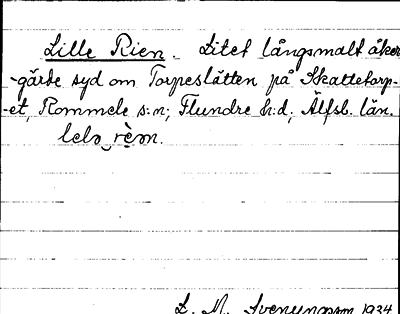 Lille Rien. Litet långsmalt åker
-gärde syd om Torpeslätten på Skattetorp-
-et, Rommele s:n; Flundre h:d; Älfsb. län.
lela rèm.
S. M. Svenungsson 1934